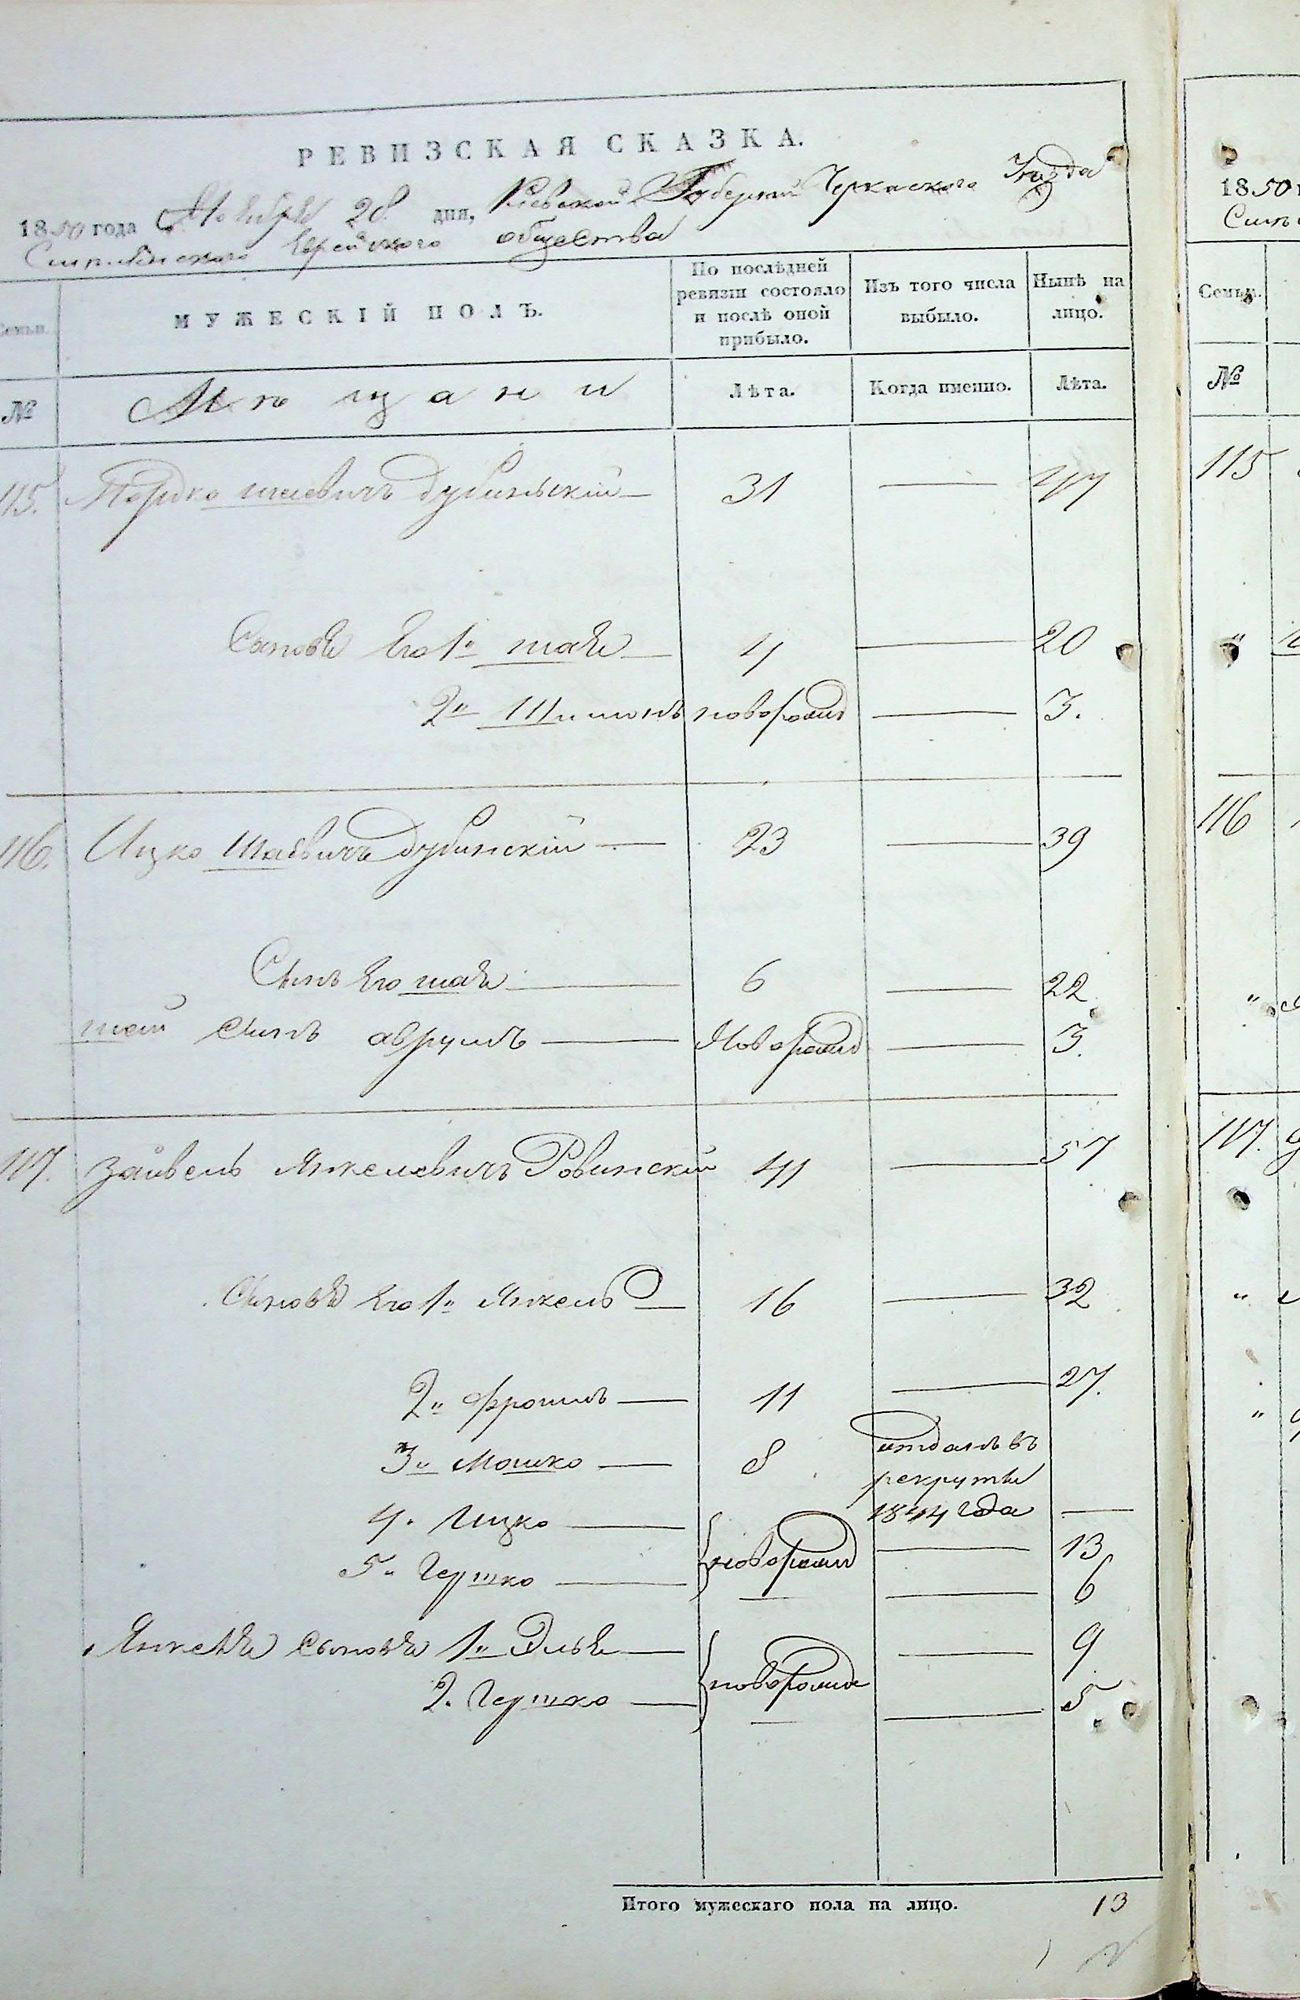 РЕВИЗСКАЯ СКАЗКА.
1850 года Ноября 28 дня, Киевской Губернии Черкаского Уезда
Еврейского общества
Семьи.
МУЖЕСКІЙ ПОЛЪ.
По послѣдней ревизіи состояло и послѣ оной прибыло.
Изъ того числа выбыло.
Нынѣ на лицо.
№
Мѣщани
Лѣта.
Когда именно.
Лѣта.
115. Дубинскій — 31 — 47
Сыновя его 1й шая — 4 — 20
2й Шимонъ новорожд — 3.
116. Ицко Шаевичъ Дубинскій — 23 — 39
Сынъ его шая — 6 — 22
шаи сынъ аврумъ — Новорожд — 3.
117. Зайвель Янкелевичъ Ровинскій 41 — 57
Сыновя его 1й Янкель — 16 — 32
2й Фроимъ — 11 — 27.
3й Мошко — 8 отданъ въ
рекруты
1844 года —
4. Ицко — новорожд — 13
5й Гершко — — 6
Янкеля сыновя 1й Элья — новорожд — 9
2. Гершко — — 5
Итого мужескаго пола на лицо. 13
1850
Семьи.
№
115
116
117.